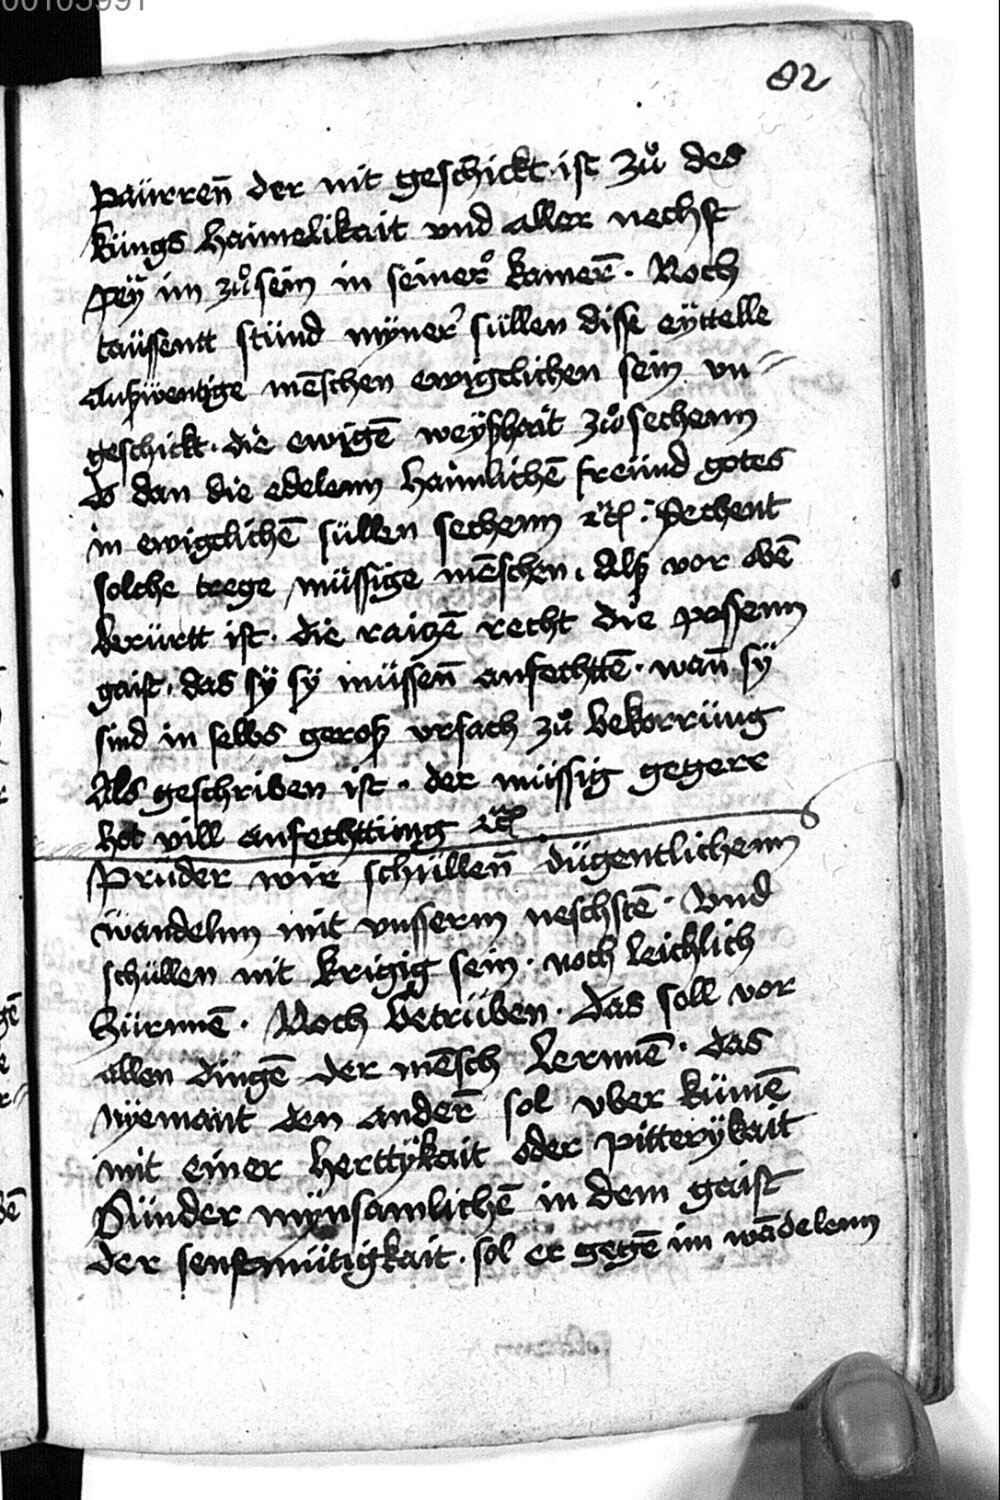 00105991
82
paürren̄ der nit geschickt · ist zuͦ des
küngs haimelikait vnd aller nechst
peÿ im zuͦ sein in seiner kamer̄ · Noch
taüssentt stünd mÿner süllen disse eÿttelle
Außwentige mēschen ewigclichen sein vn⸗
geschickt · die ewigē weÿßhait zuͦ sechenn
ds dan die edelenn haimlichē freünd gotes
in ewigclichē süllen sechenn ꝛcꝭ · Sechent
solche trege müssige mēschen · Alß vor obē
berürtt ist · die raizē recht die possenn
gaist · das sÿ sÿ müssen̄ anfechttē · wan̄ sÿ
sind in selbs geroß vrsach zuͦ bekorrüng
Als geschriben ist · der müssig gegere
hot vill anfechttüng ꝛcꝭ
Prüder wir schüllen̄ dügentlichenn
wandelnn mit vnsserm neschstē · Vnd
schüllen nit krigig sein · noch leichlich
zürnnē · Noch betrüben · das soll vor
allen dingē der mēsch lernnē · das
nÿemant den ander̄ sol vber kümē
mit einer herttÿkait oder pitterÿkait
Sünder mÿnsamlichē in dem gaist
der senftmütigkait · sol er gegē im wādelenn